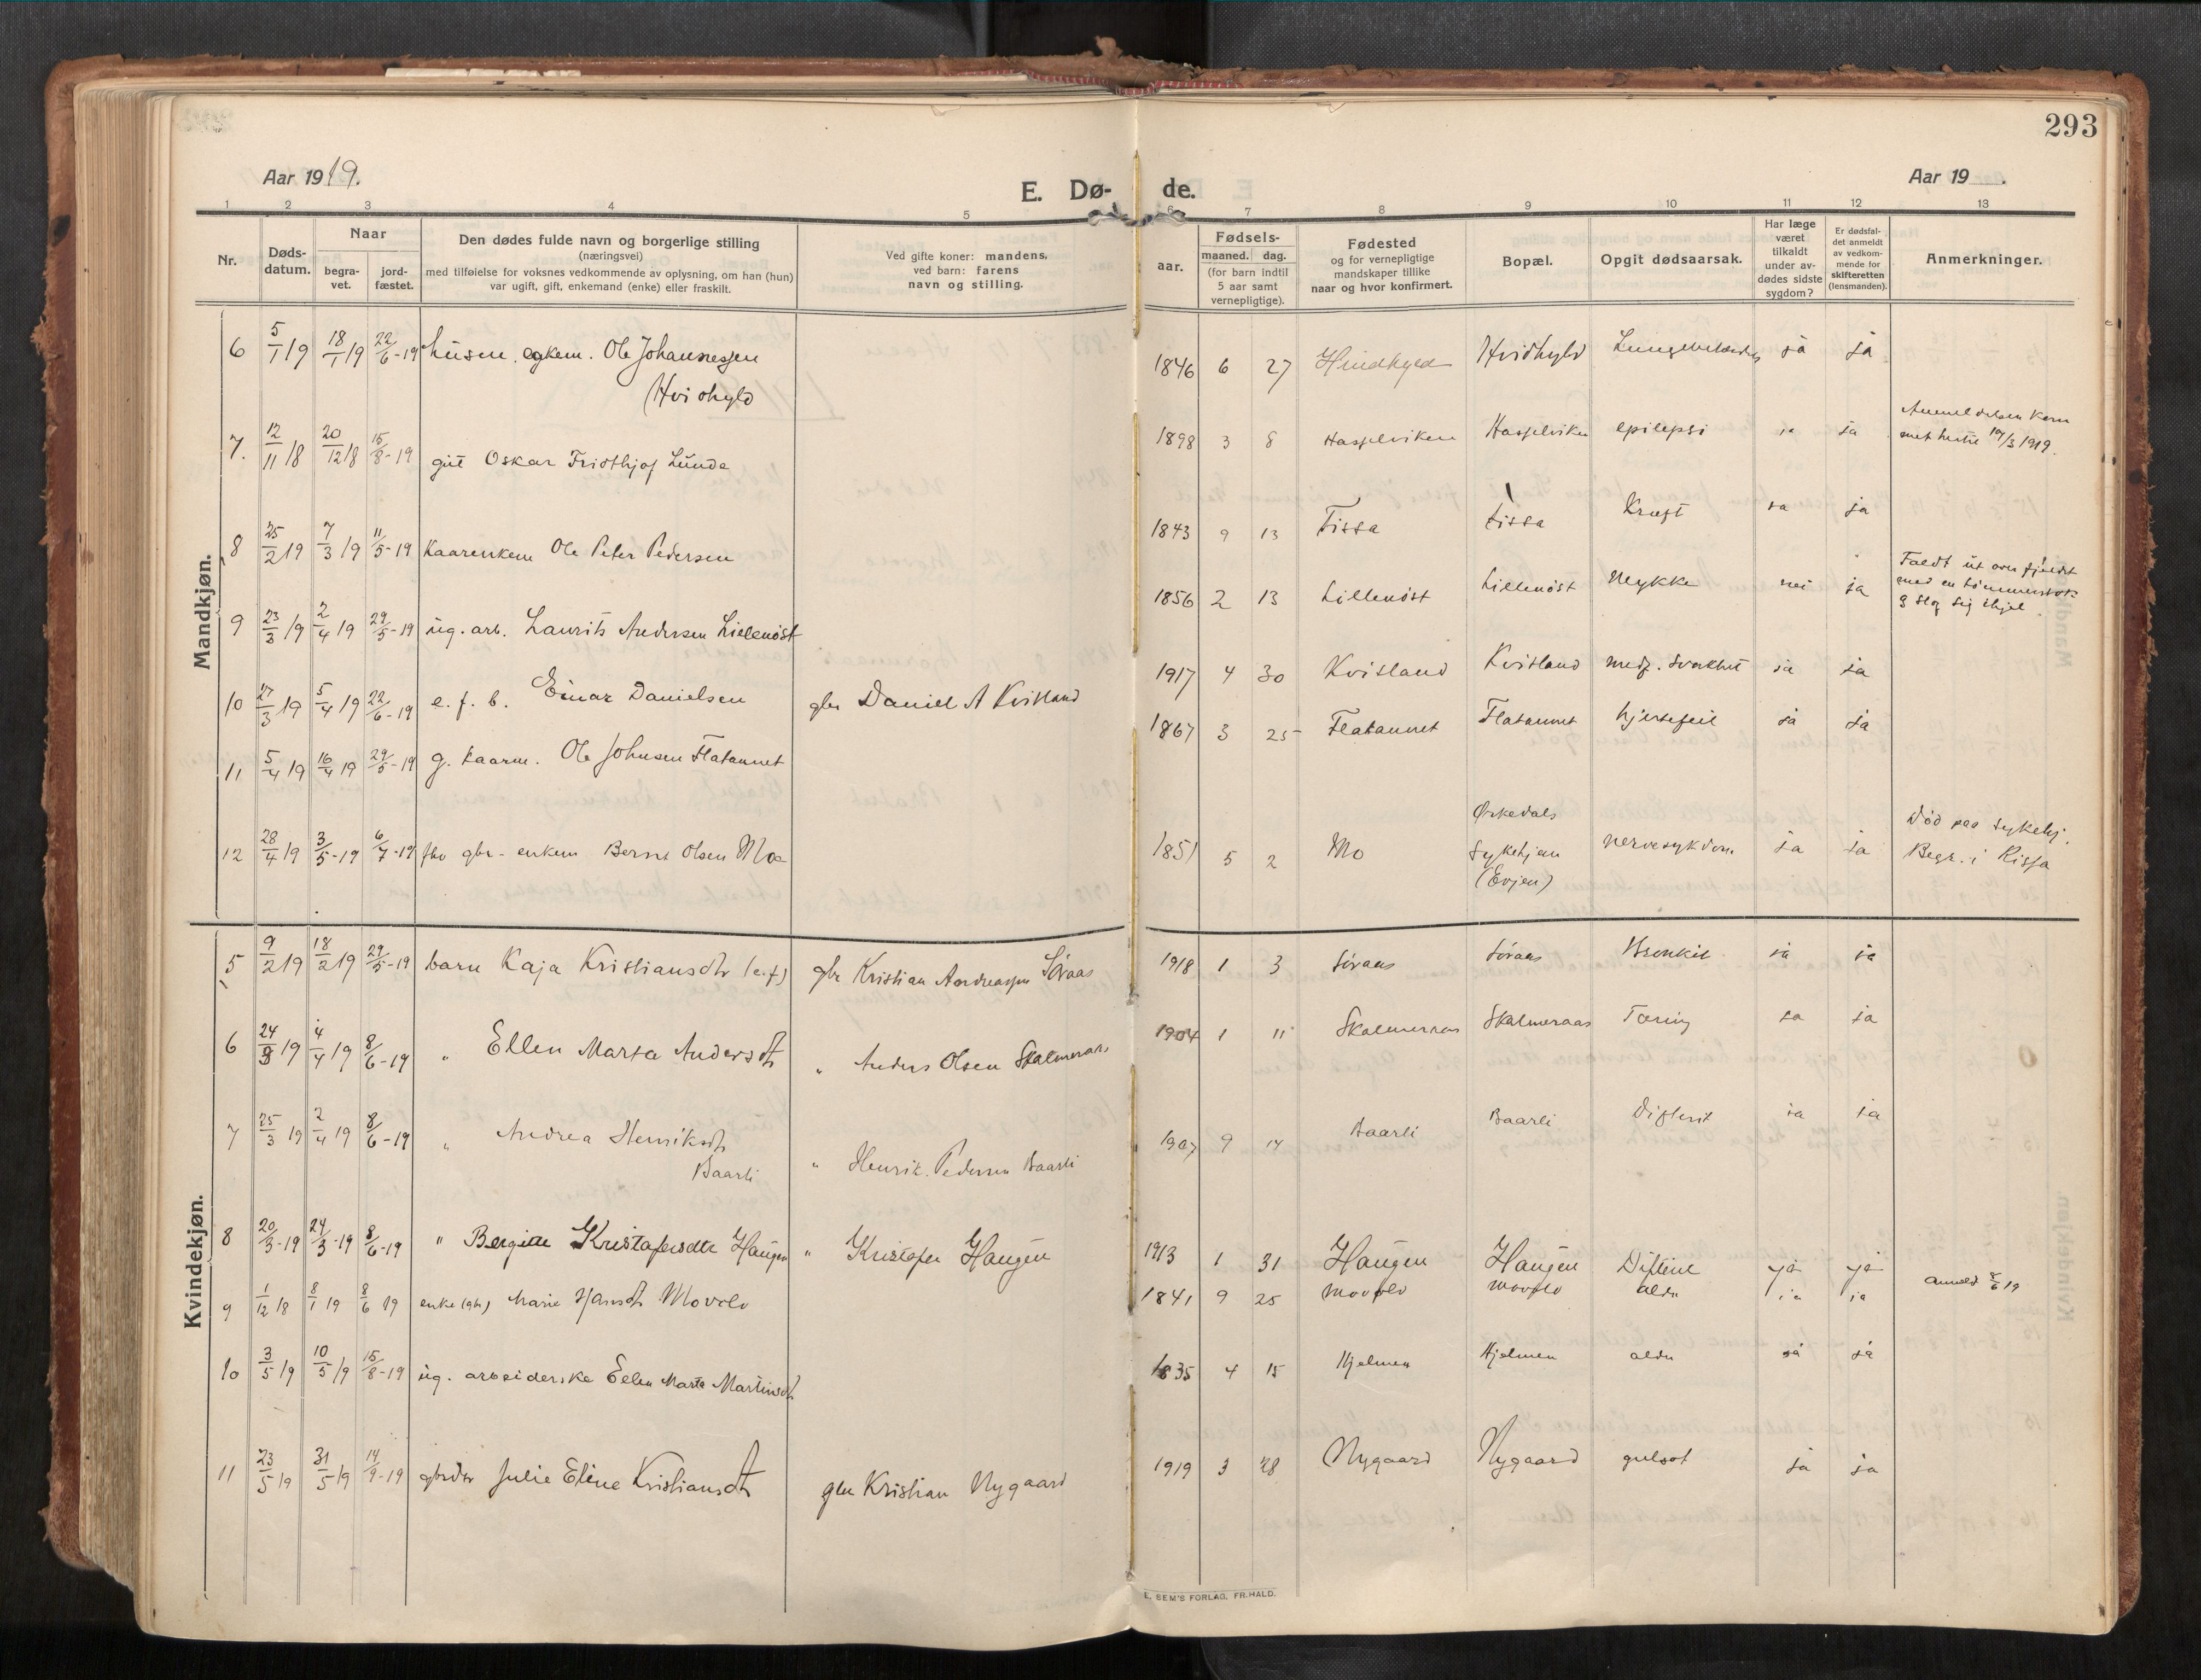 293
Aar 1919.
E. Dø-
de.
Aar 19 .
1 2 3 4 5 6 7 8 9 10 11 12 13
Nr.
Døds-
datum.
Naar
begra-
vet.
jord-
fæstet.
Den dødes fulde navn og borgerlige stilling
(næringsvei)
med tilføielse for voksnes vedkommende av oplysning, om han (hun)
var ugift, gift, enkemand (enke) eller fraskilt.
Ved gifte koner: mandens,
ved barn: farens
navn og stilling.
aar.
Fødsels-
maaned. dag.
(for barn indtil
5 aar samt
vernepligtige).
Fødested
og for vernepligtige
mandskaper tillike
naar og hvor konfirmert.
Bopæl.
Opgit dødsaarsak.
Har læge
været
tilkaldt
under av-
dødes sidste
sygdom?
Er dødsfal-
det anmeldt
av vedkom-
mende for
skifteretten
(lensmanden).
Anmerkninger.
Mandkjøn.
6 5/1 19 18/1 19 22/6-19 husm. enkem. Ole Johannessen 1846 6 27 Hvidhyld Hvidhyld ja ja
Hvidhyld
7. 12/11 18 20/12 18 15/8-19 gut Oskar Fridthjof Lunde 1898 3 8 Hasselviken Hasselviken epilepsi ja ja Anmeldelsen kom
met hertil 19/3 1919.
8 25/2 19 7/3 19 11/5-19 Kaarenkem Ole Peter Pedersen 1843 9 13 Fissa Fissa Kræft ja ja
9 23/3 19 2/4 19 29/5-19 ug. arb. Laurits Andersen Lillenöst 1856 2 13 Lillenöst Lillenöst ulykke nei ja Faldt ut over fjeldet
med en tömmerstok
& slog sig ihjel.
10 27/3 19 5/4 19 22/6-19 e. f. b. Einar Danielsen gbr Daniel A Kvitland 1917 4 30 Kvitland Kvitland medf. svakhet ja ja
11 5/4 19 16/4 19 29/5-19 g. kaarm. Ole Johnsen Flatannet 1867 3 25 Flatannet Flatannet hjertefeil ja ja
12 28/4 19 3/5-19 6/7-19 fhv gbr-enkem Bernt Olsen Moe 1851 5 2 Mo Orkedals
Sykehjem
(Evjen) nervesykdom ja ja Död paa sykehj.
Begr. i Rissa
Kvindekjøn.
5 9/2 19 18/2 19 29/5-19 barn Kaja Kristiansdtr (e.f) gbr Kristian Andreassen Söraas 1918 1 3 Söraas Söraas Bronkit ja ja
6 24/3 19 4/4 19 8/6-19 " Ellen Marta Andersdtr " Anders Olsen Skalmeraas 1904 1 11 Skalmeraas Skalmeraas Tæring ja ja
7 25/3 19 2/4 19 8/6-19 " Andrea Henriksdtr " Henrik Pedersen Baarli 1907 9 14 Baarli Baarli Difterit ja ja
Baarli
8 20/3-19 24/3-19 8/6-19 " Bergitte Kristofersdtr Haugen " Kristofer Haugen 1913 1 31 Haugen Haugen Difterit ja ja
9 1/12 18 8/1 19 8/6 19 enke (gbr) Marie Hansdtr Movold 1841 9 25 Movold Movold alder ja ja anmeldt 8/6 19
10 3/5 19 10/5 19 15/8-19 ug. arbeiderske Ellen Marta Martinsdtr 1835 4 15 Hjelmen Hjelmen alder ja ja
11 23/5 19 31/5 19 14/9-19 gbrdtr Julie Eline Kristiansdtr gbr Kristian Nygaard 1919 3 28 Nygaard Nygaard gulsot ja ja
E. SEM'S FORLAG, FR.HALD.